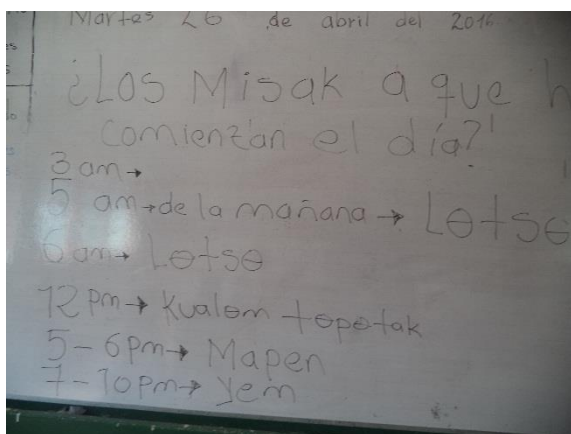 Martes 26 de abril del 2016
¿Los Misak a que h
comienzan el día?
3 am→
5 am→de la mañana → Lɵtsɵ
6 am→ Lɵtsɵ
12 pm→ Kualɵm tɵpɵtak
5-6pm→ Mapen
7-10pm→ yem